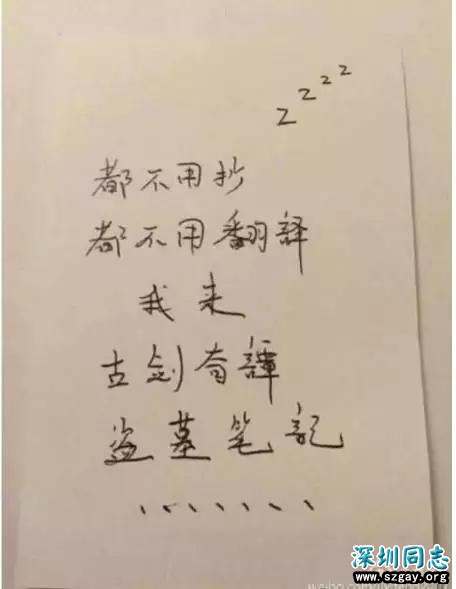 z z z z
都不用抄
都不用翻譯
我来
古剑有譚
盗墓笔記
、、、、、、、
深圳同志
www.szgay.org